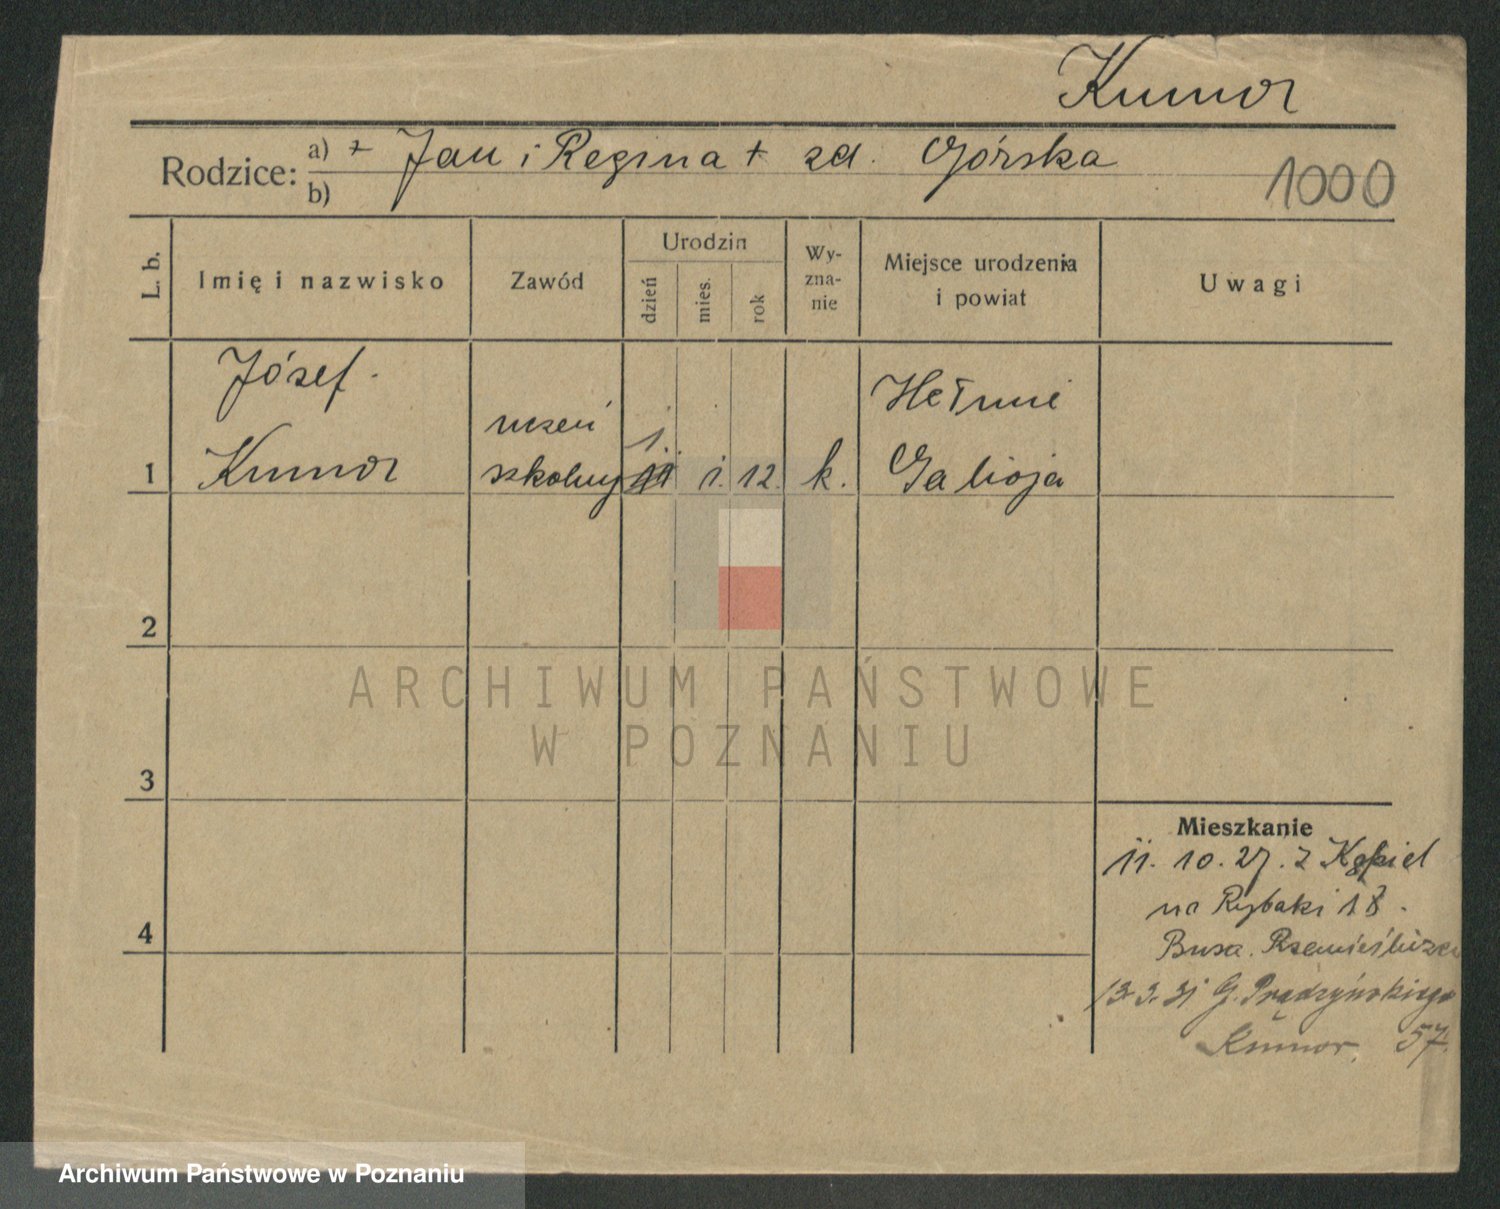 Kumor
Rodzice: a) + Jan i Regina + zd. Górska
b)
1000
L. b.
Imię i nazwisko
Zawód
Urodzin
dzień
mies.
rok
Wy-
zna-
nie
Miejsce urodzenia
i powiat
Uwagi
Józef
Kumor
uczeń
szkolny
1.
1
11 i. 12. k.
Hełmie
Galicja
2
3
4
ARCHIWUM PAŃSTWOWE
W POZNANIU
Mieszkanie
11. 10. 27. z Kąpiel
na Rybaki 18.
Bursa. Rzemieślnicza
13. 3. 31 G. Prądzyńskiego
Kumor. 57.
Archiwum Państwowe w Poznaniu